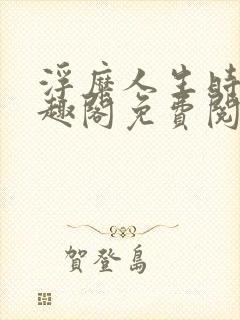 浮靡人生時
趣閣免費閱
賀登島